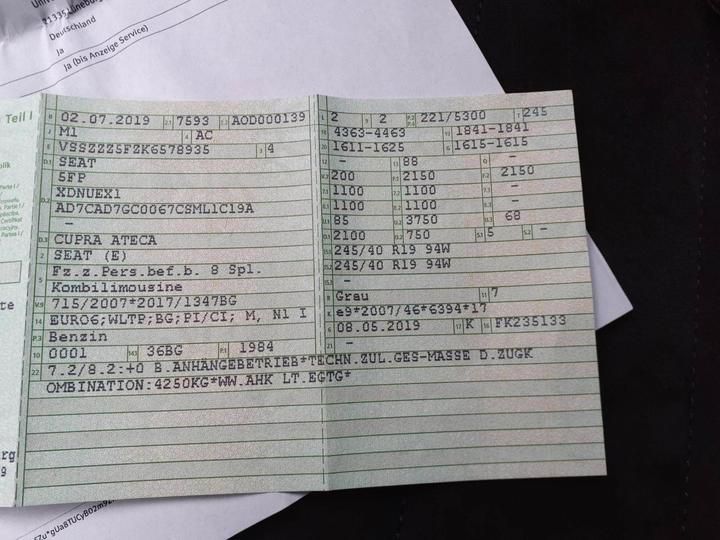 21335 Lüneburg
Deutschland
Ja
Ja (bis Anzeige Service)
Teil I
B 02.07.2019 2.1 7593 2.2 AOD000139
J M1 4 AC
E VSSZZZ5FZK6578935 3 4
D.1 SEAT
5FP
D.2 XDNUEX1
AD7CAD7GC0067CSML1C19A
-
D.3 CUPRA ATECA
2 SEAT (E)
5 Fz.z.Pers.bef.b. 8 Spl.
Kombilimousine
V.9 715/2007*2017/1347BG
14 EURO6;WLTP;BG;PI/CI; M, N1 I
P.3 Benzin
10 0001 14.1 36BG P.1 1984
L 2 9 2 P.2 P.4 221/5300 T 245
18 4363-4463 19 1841-1841
20 1611-1625 G 1615-1615
12 - 13 88 Q -
V.7 200 F.1 2150 F.2 2150
7.1 1100 7.2 1100 7.3 -
8.1 1100 8.2 1100 8.3 -
U.1 85 U.2 3750 U.3 68
O.1 2100 O.2 750 S.1 5 S.2 -
15.1 245/40 R19 94W
15.2 245/40 R19 94W
15.3 -
R Grau 11 7
K e9*2007/46*6394*17
6 08.05.2019 17 K 16 FK235133
21 -
22 7.2/8.2:+0 B.ANHÄNGEBETRIEB*TECHN.ZUL.GES-MASSE D.ZUGK
OMBINATION:4250KG*WW.AHK LT.EGTG*